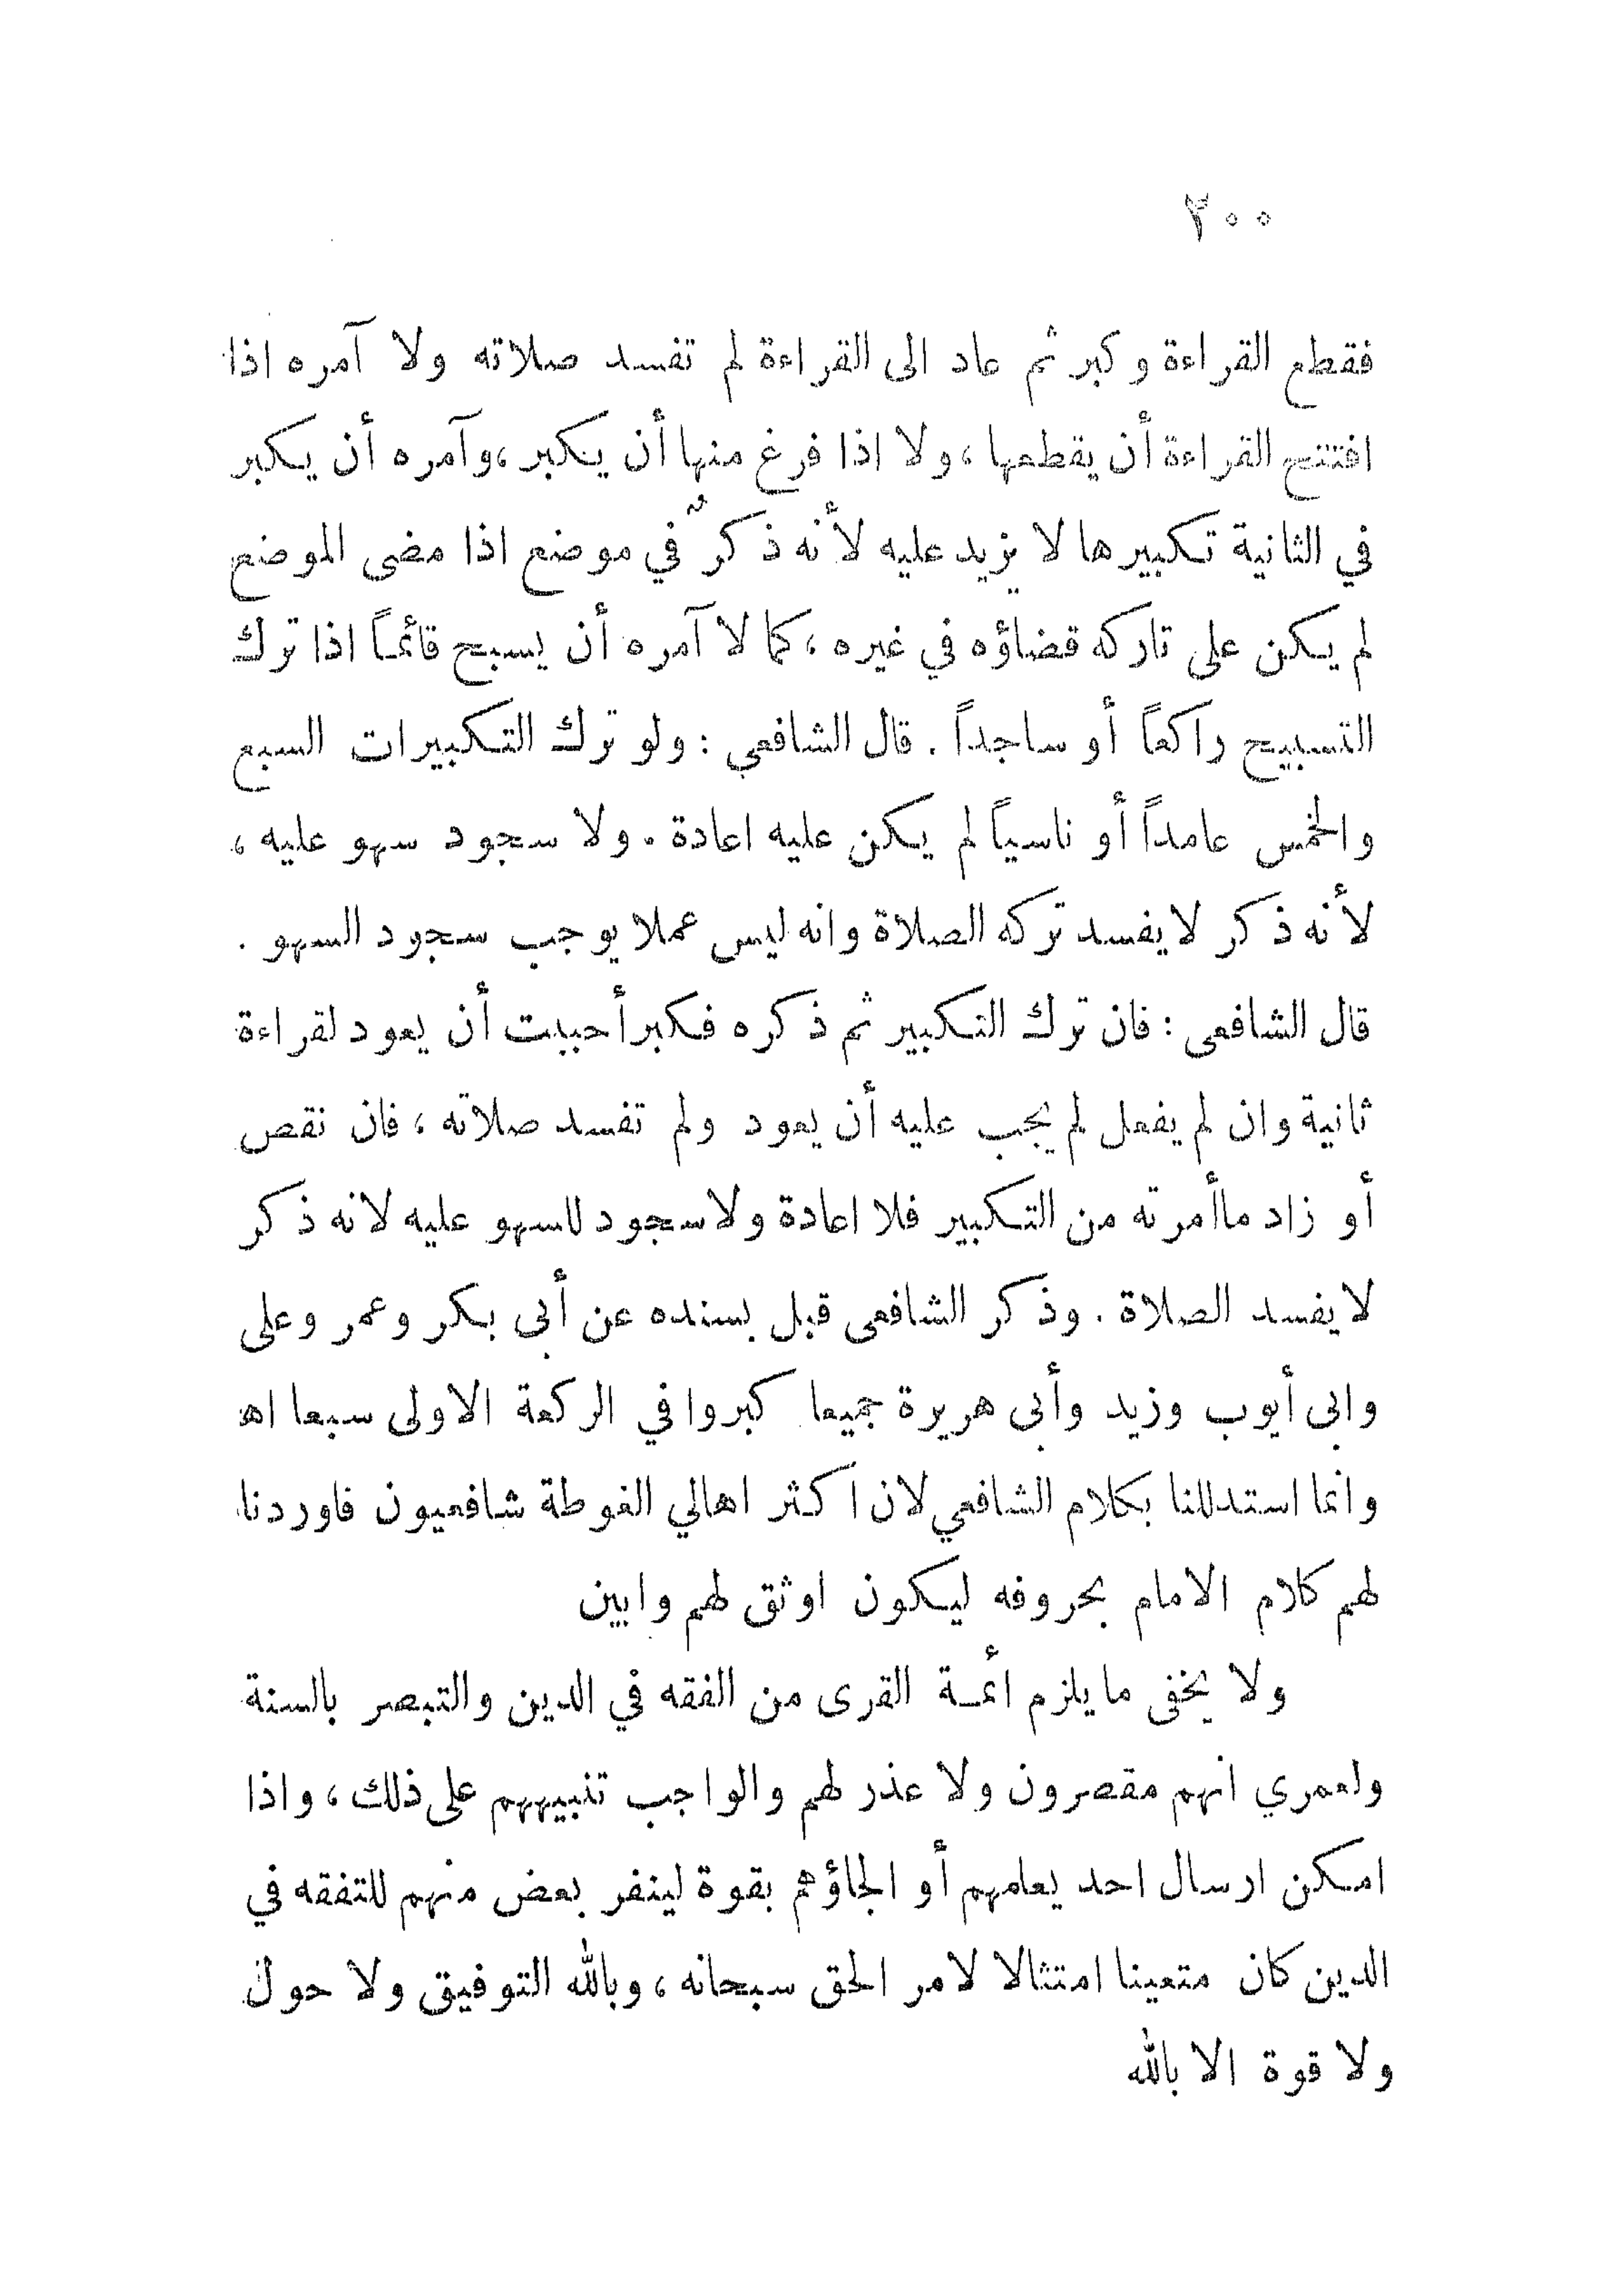 ٢٠٠
فقطع القراءة وكبر ثم عاد الى القراءة لم تفسد صلاته ولا آمره اذا
افتتح القراءة أن يقطعها ، ولا اذا فرغ منها أن يكبر ، وآمره أن يكبر
في الثانية تكبيرها لا يزيد عليه لأنه ذكرٌ في موضع اذا مضى الموضع
لم يكن على تاركه قضاؤه في غيره ، كما لا آمره أن يسبح قائماً اذا ترك
التسبيح راكعاً أو ساجداً . قال الشافعي : ولو ترك التكبيرات السبع
والخمس عامداً أو ناسياً لم يكن عليه اعادة . ولا سجود سهو عليه ،
لأنه ذكر لا يفسد تركه الصلاة وانه ليس عملا يوجب سجود السهو .
قال الشافعى : فان ترك التكبير ثم ذكره فكبر أحببت أن يعود لقراءة
ثانية وان لم يفعل لم يجب عليه أن يعود ولم تفسد صلاته ، فان نقص
أو زاد ماأمرته من التكبير فلا اعادة ولا سجود للسهو عليه لانه ذكر
لا يفسد الصلاة . وذكر الشافعى قبل بسنده عن أبى بكر وعمر وعلى
وابى أيوب وزيد وأبى هريرة جميعا كبروا في الركعة الاولى سبعا اهـ
وانما استدللنا بكلام الشافعي لان اكثر اهالي الغوطة شافعيون فاوردنا
لهم كلام الامام بحروفه ليكون اوثق لهم وابين
ولا يخفى ما يلزم أئمة القرى من الفقه في الدين والتبصر بالسنة
ولعمري انهم مقصرون ولا عذر لهم والواجب تنبيههم على ذلك ، واذا
امكن ارسال احد يعلمهم أو الجاؤهم بقوة لينفر بعض منهم للتفقه في
الدين كان متعينا امتثالا لامر الحق سبحانه ، وبالله التوفيق ولا حول
ولا قوة الا بالله